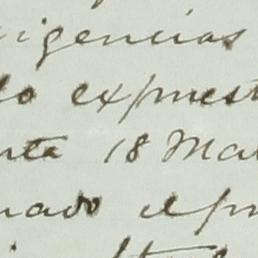 igencias
do expuest
nta 18 Ma
nado el pr